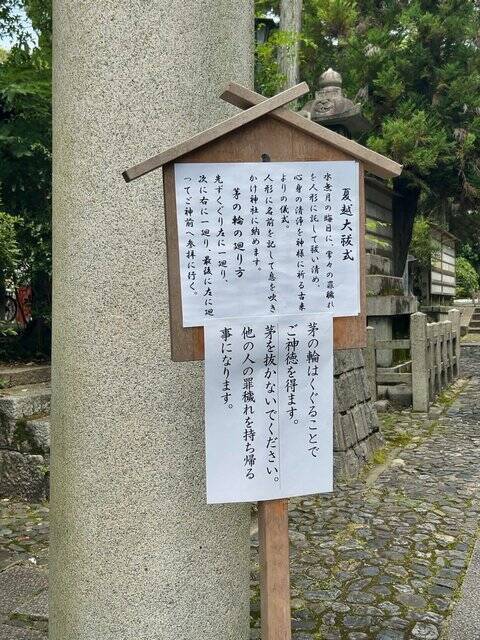 夏越大祓式
水無月の晦日に、常々の罪穢れ
を人形に託して祓い清め、
心身の清浄を神様に祈る古来
よりの儀式。
人形に名前を記して息を吹き
かけ神社に納めます。
茅の輪の廻り方
先ずくぐり左に一廻り、
次に右に一廻り、最後に左に廻
ってご神前へ参拝に行く。
茅の輪はくぐることで
ご神徳を得ます。
茅を抜かないでください。
他の人の罪穢れを持ち帰る
事になります。